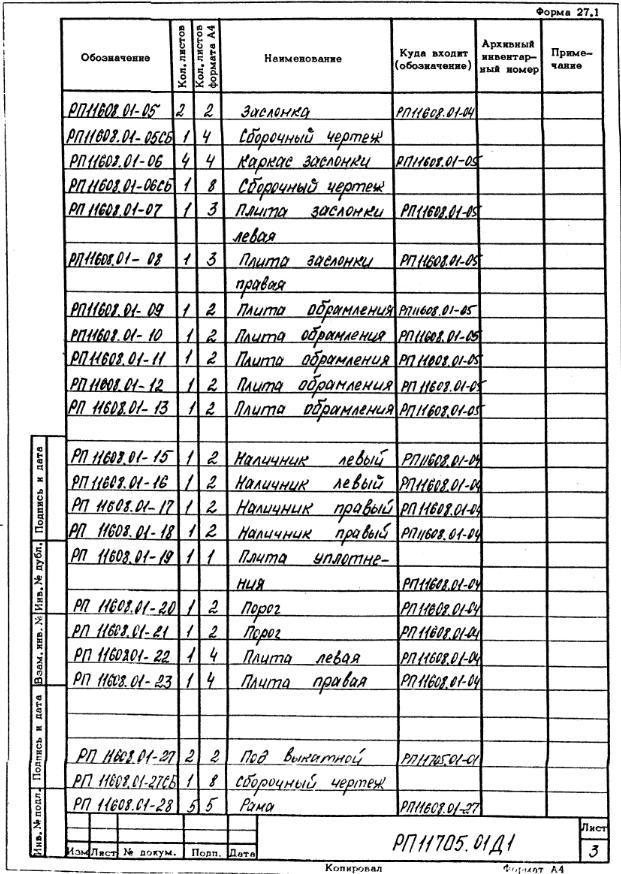 Форма 27.1
Обозначение Кол. листов Кол. листов формата А4 Наименование Куда входит (обозначение) Архивный инвентар-ный номер Приме-чание
РП11608.01-05 2 2 Заслонка РП11608.01-04
РП11608.01-05СБ 1 4 Сборочный чертеж
РП11608.01-06 4 4 Каркас заслонки РП11608.01-05
РП11608.01-06СБ 1 8 Сборочный чертеж
РП 11608.01-07 1 3 Плита заслонки РП11608.01-05
левая
РП11608.01-08 1 3 Плита заслонки РП11608.01-05
правая
РП11608.01-09 1 2 Плита обрамления РП11608.01-05
РП11608.01-10 1 2 Плита обрамления РП11608.01-05
РП 11608.01-11 1 2 Плита обрамления РП 11608.01-05
РП 11608.01-12 1 2 Плита обрамления РП 11608.01-05
РП 11608.01-13 1 2 Плита обрамления РП11608.01-05
РП 11608.01-15 1 2 Наличник левый РП11608.01-04
РП 11608.01-16 1 2 Наличник левый РП11608.01-04
РП 11608.01-17 1 2 Наличник правый РП11608.01-04
РП 11608.01-18 1 2 Наличник правый РП11608.01-04
РП 11608.01-19 1 1 Плита уплотне-
ния РП11608.01-04
РП 11608.01-20 1 2 Порог РП11608.01-04
РП 11608.01-21 1 2 Порог РП11608.01-04
РП 1160801-22 1 4 Плита левая РП11608.01-04
РП 11608.01-23 1 4 Плита правая РП11608.01-04
РП 11608.01-27 2 2 Под выкатной РП11705.01-01
РП 11608.01-27СБ 1 8 Сборочный чертеж
РП 11608.01-28 5 5 Рама РП11608.01-27
Инв. № подл. Подпись и дата Взам. инв. № Инв. № дубл. Подпись и дата
Изм Лист № докум. Подп. Дата
РП11705.01Д1
Лист
3
Копировал Формат А4